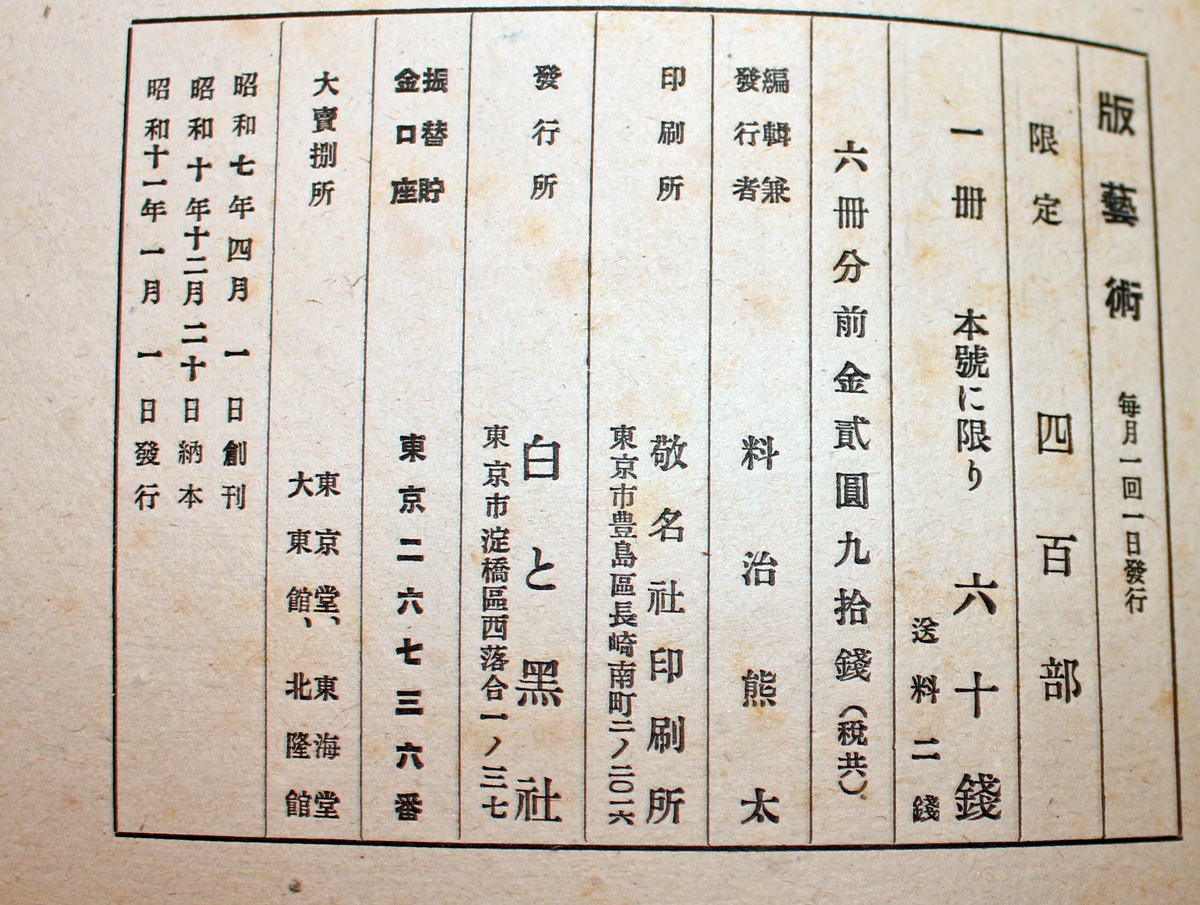 版藝術 每月一回一日發行
限定 四百部
一冊 本號に限り 六十錢
送料二錢
六冊分前金貳圓九拾錢（稅共）
編輯兼
發行者
料治熊太
印刷所
敬名社印刷所
東京市豊島區長崎南町二ノ二〇一六
發行所
白と黑社
東京市淀橋區西落合一ノ三七
振替貯
金口座
東京二六七三六番
大賣捌所
東京堂、東海堂
大東館、北隆館
昭和七年四月一日創刊
昭和十年十二月二十日納本
昭和十一年一月一日發行